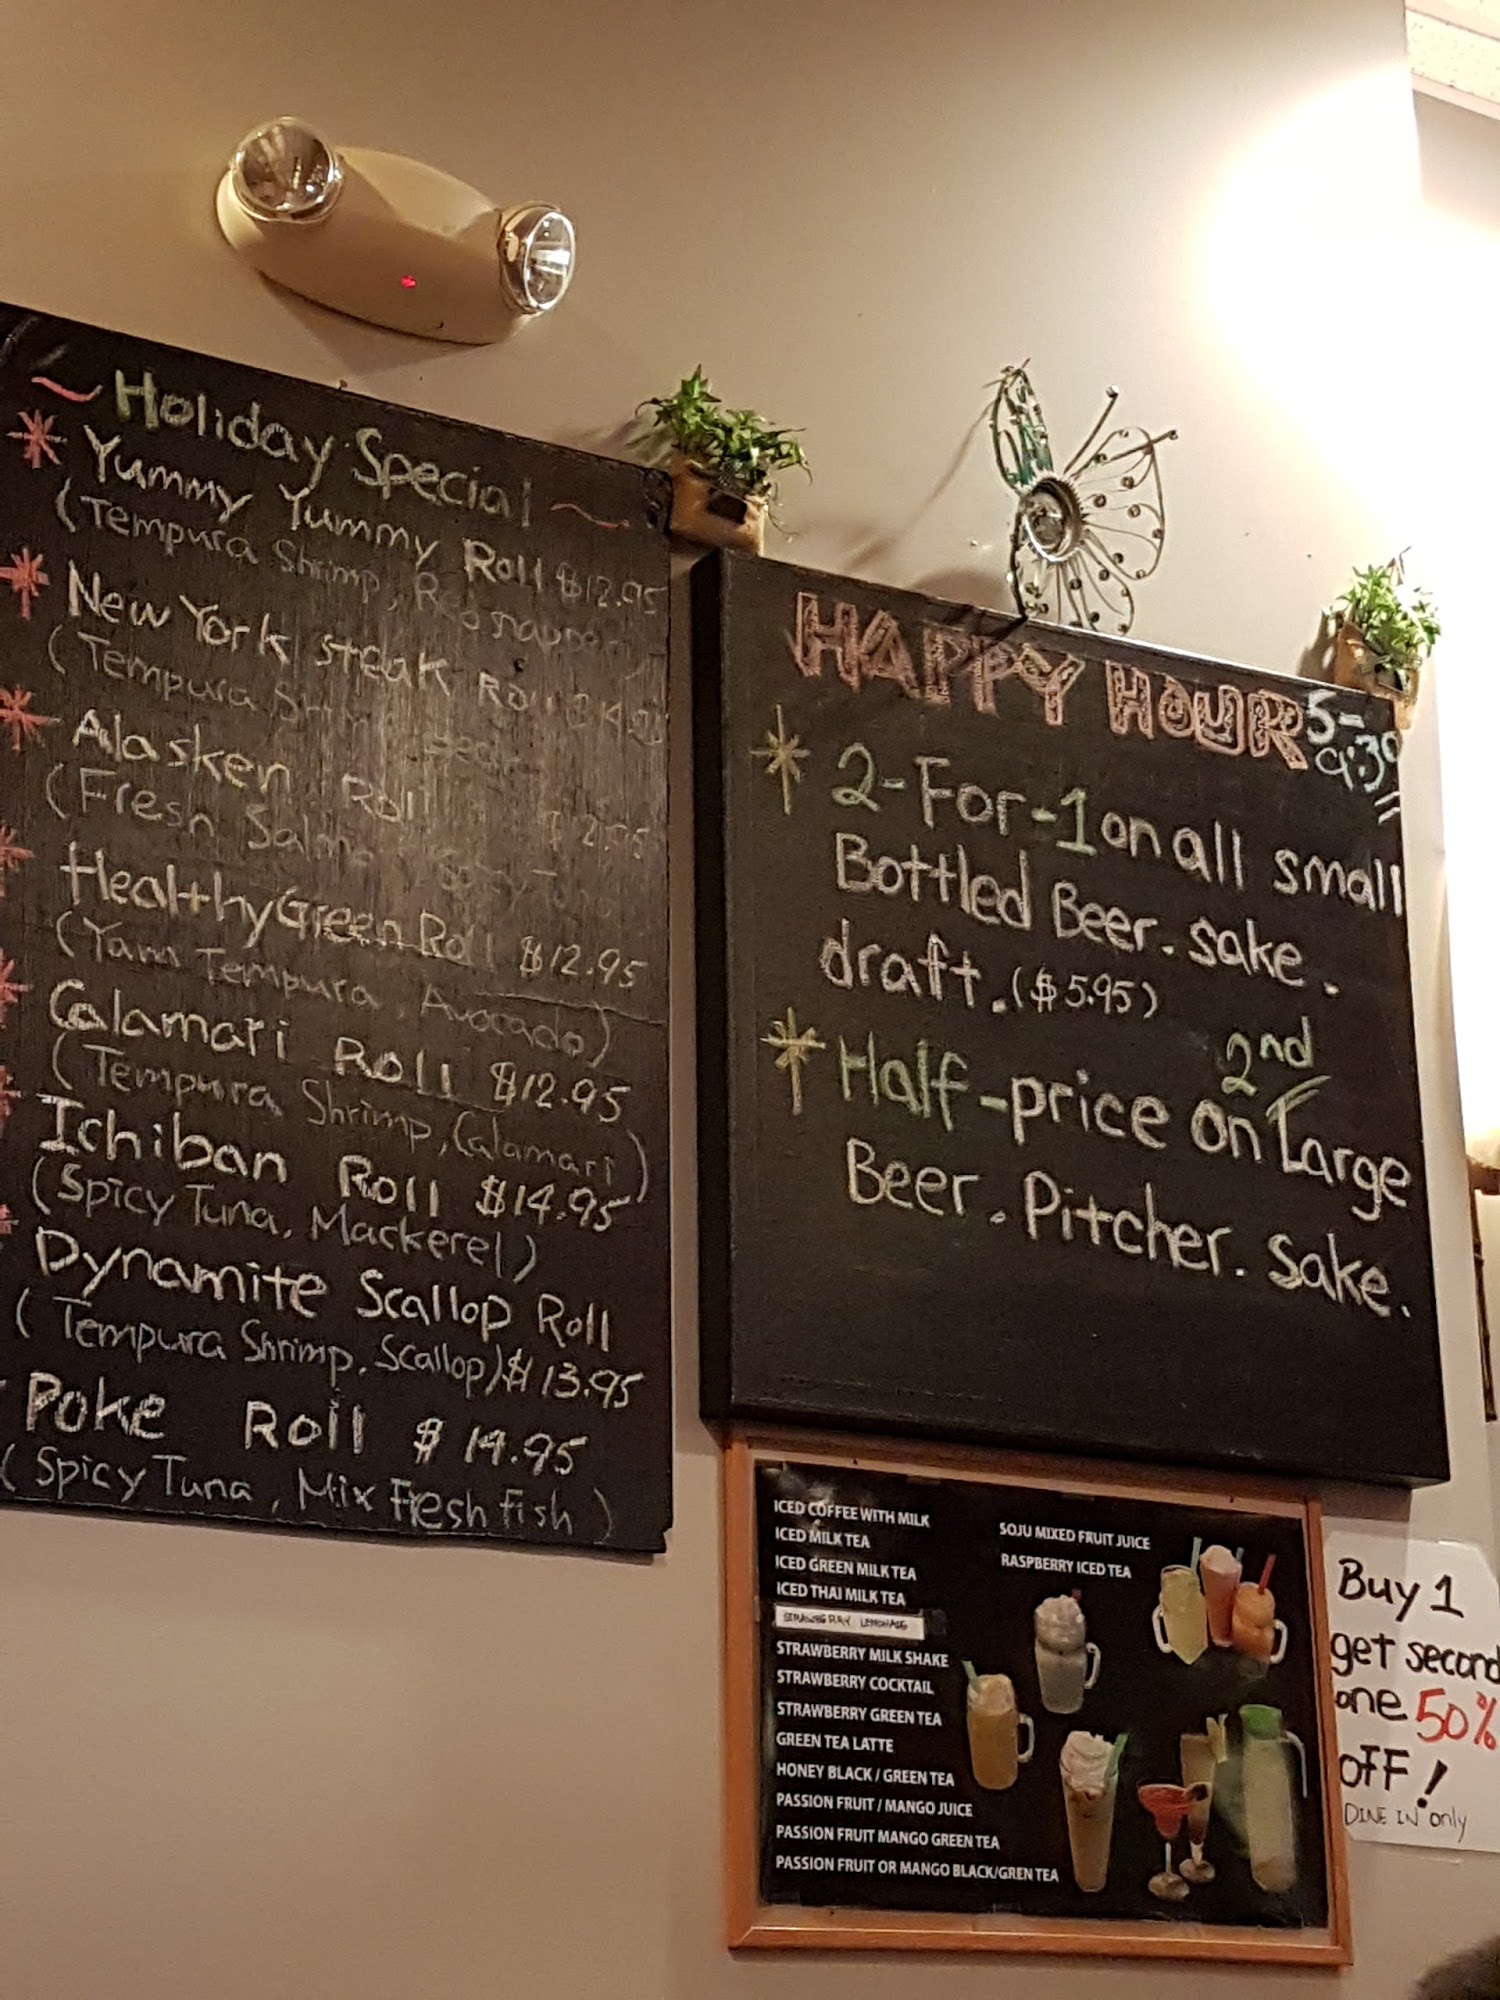 ~ Holiday Special ~
Yummy Yummy Roll $12.95
(Tempura Shrimp, Red snapper)
New York steak Roll
(Tempura Shrimp
Alasken Roll
(Fresh Salmon, Spicy Tuna
Healthy Green Roll $12.95
(Yam Tempura, Avocado)
Calamari Roll $12.95
(Tempura Shrimp, Calamari)
Ichiban Roll $14.95
(Spicy Tuna, Mackerel)
Dynamite Scallop Roll
(Tempura Shrimp, Scallop) $13.95
Poke Roll $14.95
(Spicy Tuna, Mix Fresh fish)
HAPPY HOUR 5-
9:30
2-For-1 on all small
Bottled Beer. sake.
draft. ($5.95)
Half-price on 2nd Large
Beer. Pitcher. Sake.
ICED COFFEE WITH MILK
ICED MILK TEA
ICED GREEN MILK TEA
ICED THAI MILK TEA
STRAWBERRY LEMONADE
STRAWBERRY MILK SHAKE
STRAWBERRY COCKTAIL
STRAWBERRY GREEN TEA
GREEN TEA LATTE
HONEY BLACK / GREEN TEA
PASSION FRUIT / MANGO JUICE
PASSION FRUIT MANGO GREEN TEA
PASSION FRUIT OR MANGO BLACK/GREN TEA
SOJU MIXED FRUIT JUICE
RASPBERRY ICED TEA
Buy 1
get second
one 50%
OFF!
DINE IN only